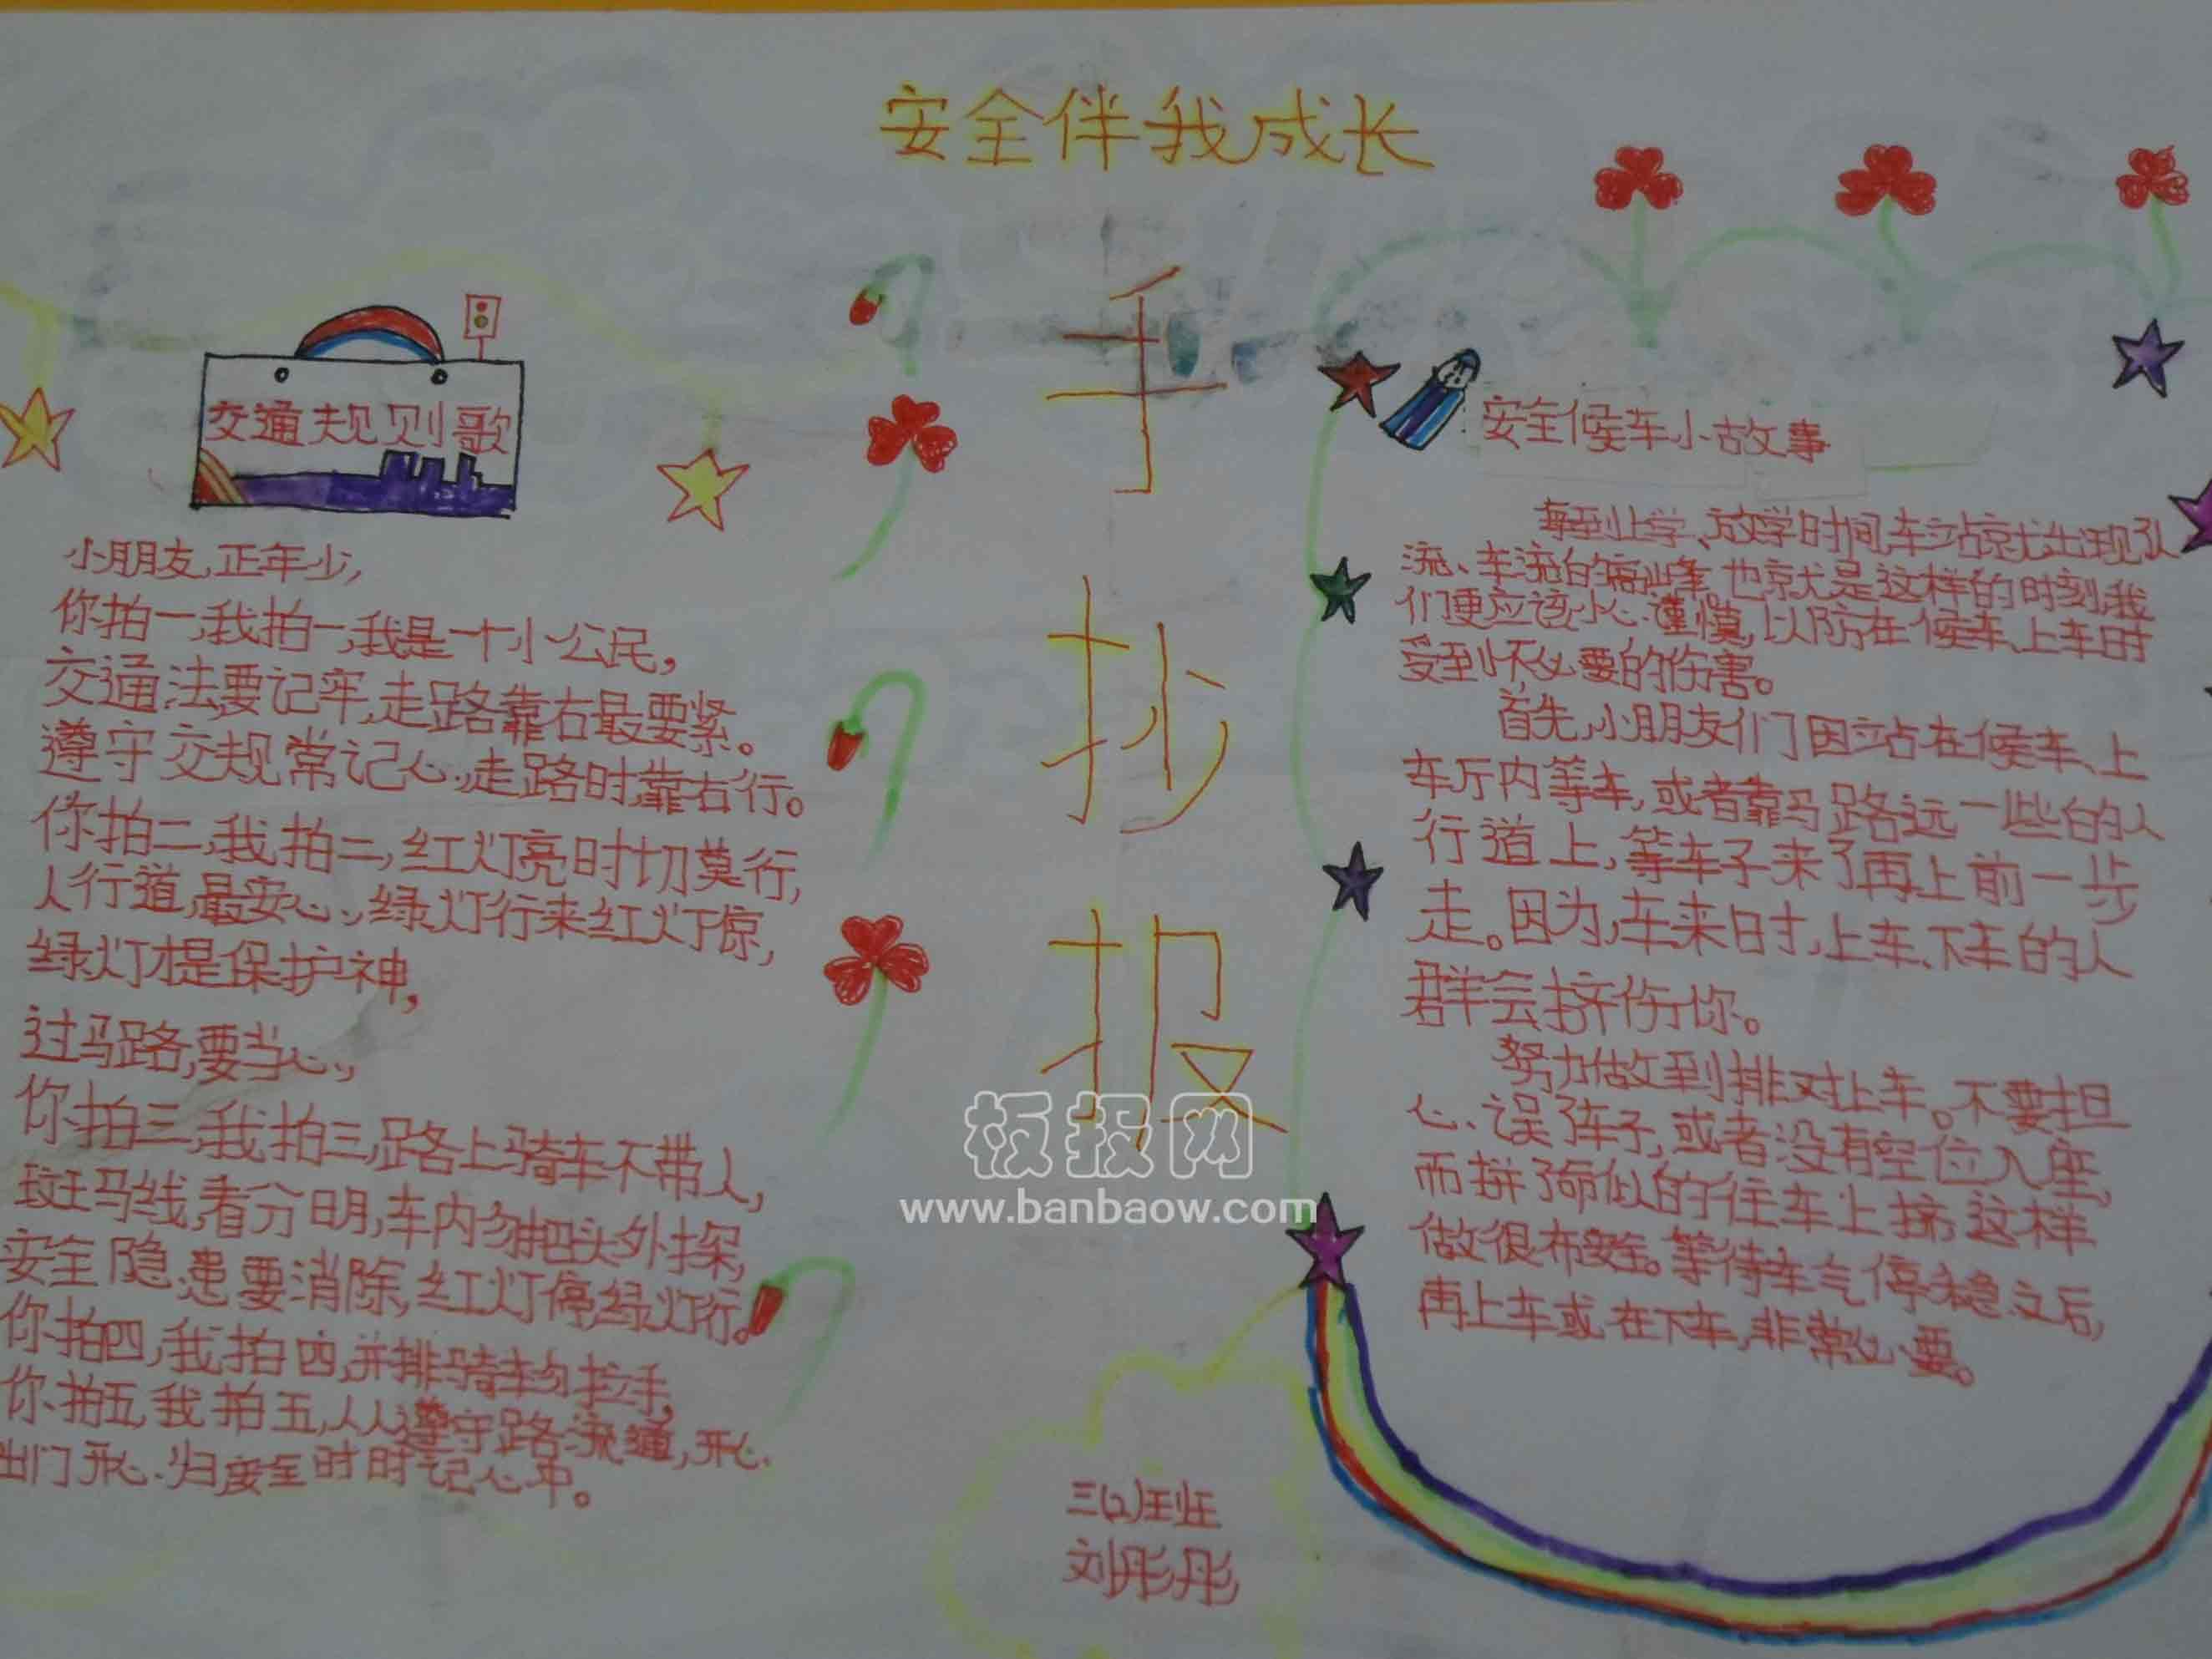 安全伴我成长
手
抄
报
交通规则歌
小朋友,正年少,
你拍一,我拍一,我是一个小公民,
交通法要记牢,走路靠右最要紧。
遵守交规常记心,走路时,靠右行。
你拍二,我拍二,红灯亮时切莫行,
人行道,最安心,绿灯行来红灯惊,
绿灯才是保护神,
过马路,要当心,
你拍三,我拍三,路上骑车不带人,
斑马线,看分明,车内勿把头外探,
安全隐患要消除,红灯停,绿灯行。
你拍四,我拍四,并排骑车勿拉手,
你拍五我拍五,人人遵守路流通,开心
出门开心归安全时时记心中。
安全候车小故事
每到上学、放学时间,车站就尤出现
流、车流的高峰。也就是这样的时刻,我
们更应该小心谨慎,以防在候车、上车时
受到不必要的伤害。
首先,小朋友们因站在候车、上
车厅内等车,或者靠马路远一些的人
行道上,等车子来了再上前一步
走。因为,车来时,上车、下车的人
群会挤伤你。
努力做到排对上车。不要担
心误了车子,或者没有空位入座,
而拼了命似的往车上挤,这样
做很布安全。等待车气停稳之后,
再上车或在下车,非常必要。
三(2)班
刘彤彤
板报网
www.banbaow.com